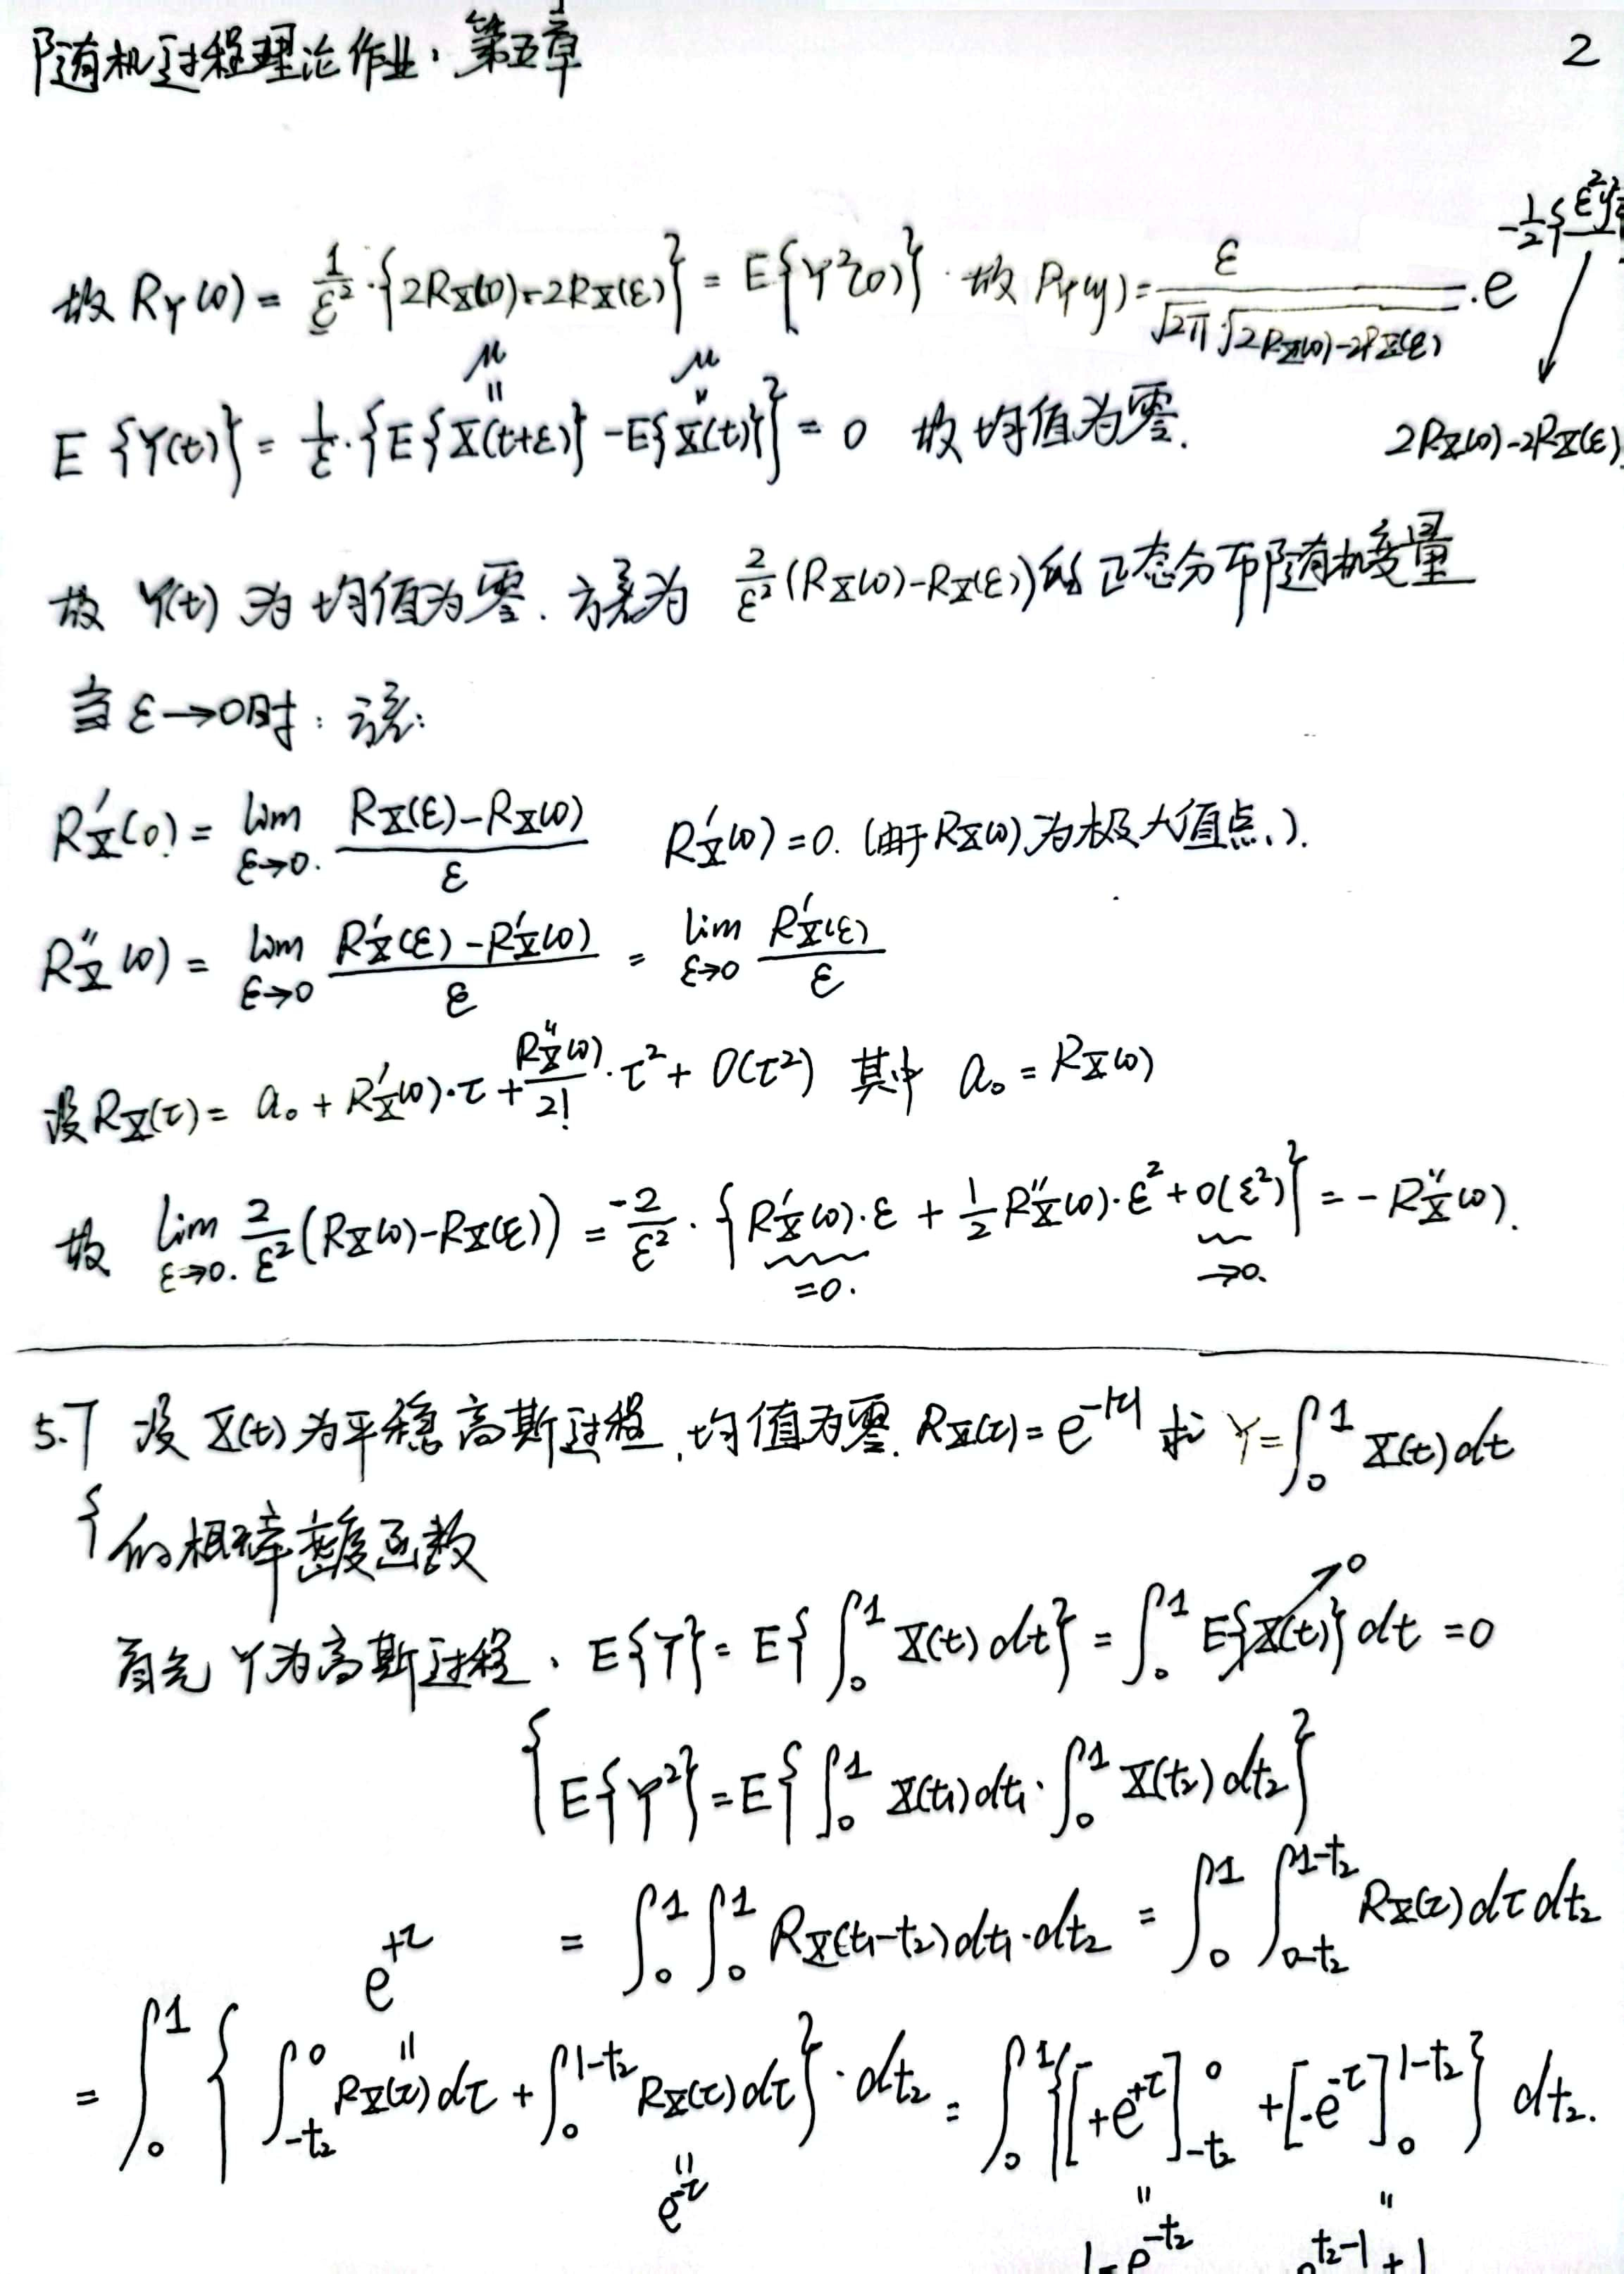 随机过程理论作业,第五章 2
故 R_Y(0) = 1/ε² · {2R_X(0) - 2R_X(ε)} = E{Y²(0)} . 故 P_Y(y) = ε / (√2π · √(2R_X(0) - 2R_X(ε))) · e
-1/2 { ε²y²
2R_X(0) - 2R_X(ε)
μ μ
E{Y(t)} = 1/ε · {E{X(t+ε)} - E{X(t)}} = 0 故均值为零.
故 Y(t) 为均值为零. 方差为 2/ε² (R_X(0) - R_X(ε)) 的正态分布随机变量
当 ε→0时:
R'_X(0) = lim ε→0. (R_X(ε) - R_X(0)) / ε R'_X(0) = 0. (由于R_X(0)为极大值点、).
R''_X(0) = lim ε→0 (R'_X(ε) - R'_X(0)) / ε = lim ε→0 R'_X(ε) / ε
设 R_X(τ) = a₀ + R'_X(0)·τ + R''_X(0)/2! · τ² + O(τ²) 其中 a₀ = R_X(0)
故 lim ε→0. 2/ε² (R_X(0) - R_X(ε)) = -2/ε² · {R'_X(0)·ε + 1/2 R''_X(0)·ε² + o(ε²)} = -R''_X(0).
=0. →0.
5.7 设 X(t) 为平稳高斯过程,均值为零. R_X(τ) = e^{-|τ|} 求 Y = ∫₀¹ X(t)dt
的概率密度函数
首先 Y为高斯过程、E{Y} = E{∫₀¹ X(t)dt} = ∫₀¹ E{X(t)}dt = 0
→0
E{Y²} = E{∫₀¹ X(t₁)dt₁ · ∫₀¹ X(t₂)dt₂}
= ∫₀¹ ∫₀¹ R_X(t₁-t₂)dt₁·dt₂ = ∫₀¹ ∫_{0-t₂}^{1-t₂} R_X(τ)dτ dt₂
e^{+τ}
= ∫₀¹ {∫_{-t₂}^0 R_X(τ)dτ + ∫₀^{1-t₂} R_X(τ)dτ}·dt₂ = ∫₀¹ {[+e^{+τ}]_{-t₂}^0 + [-e^{-τ}]_0^{1-t₂}} dt₂.
e^{-τ}
1-e^{-t₂} e^{t₂-1}+1